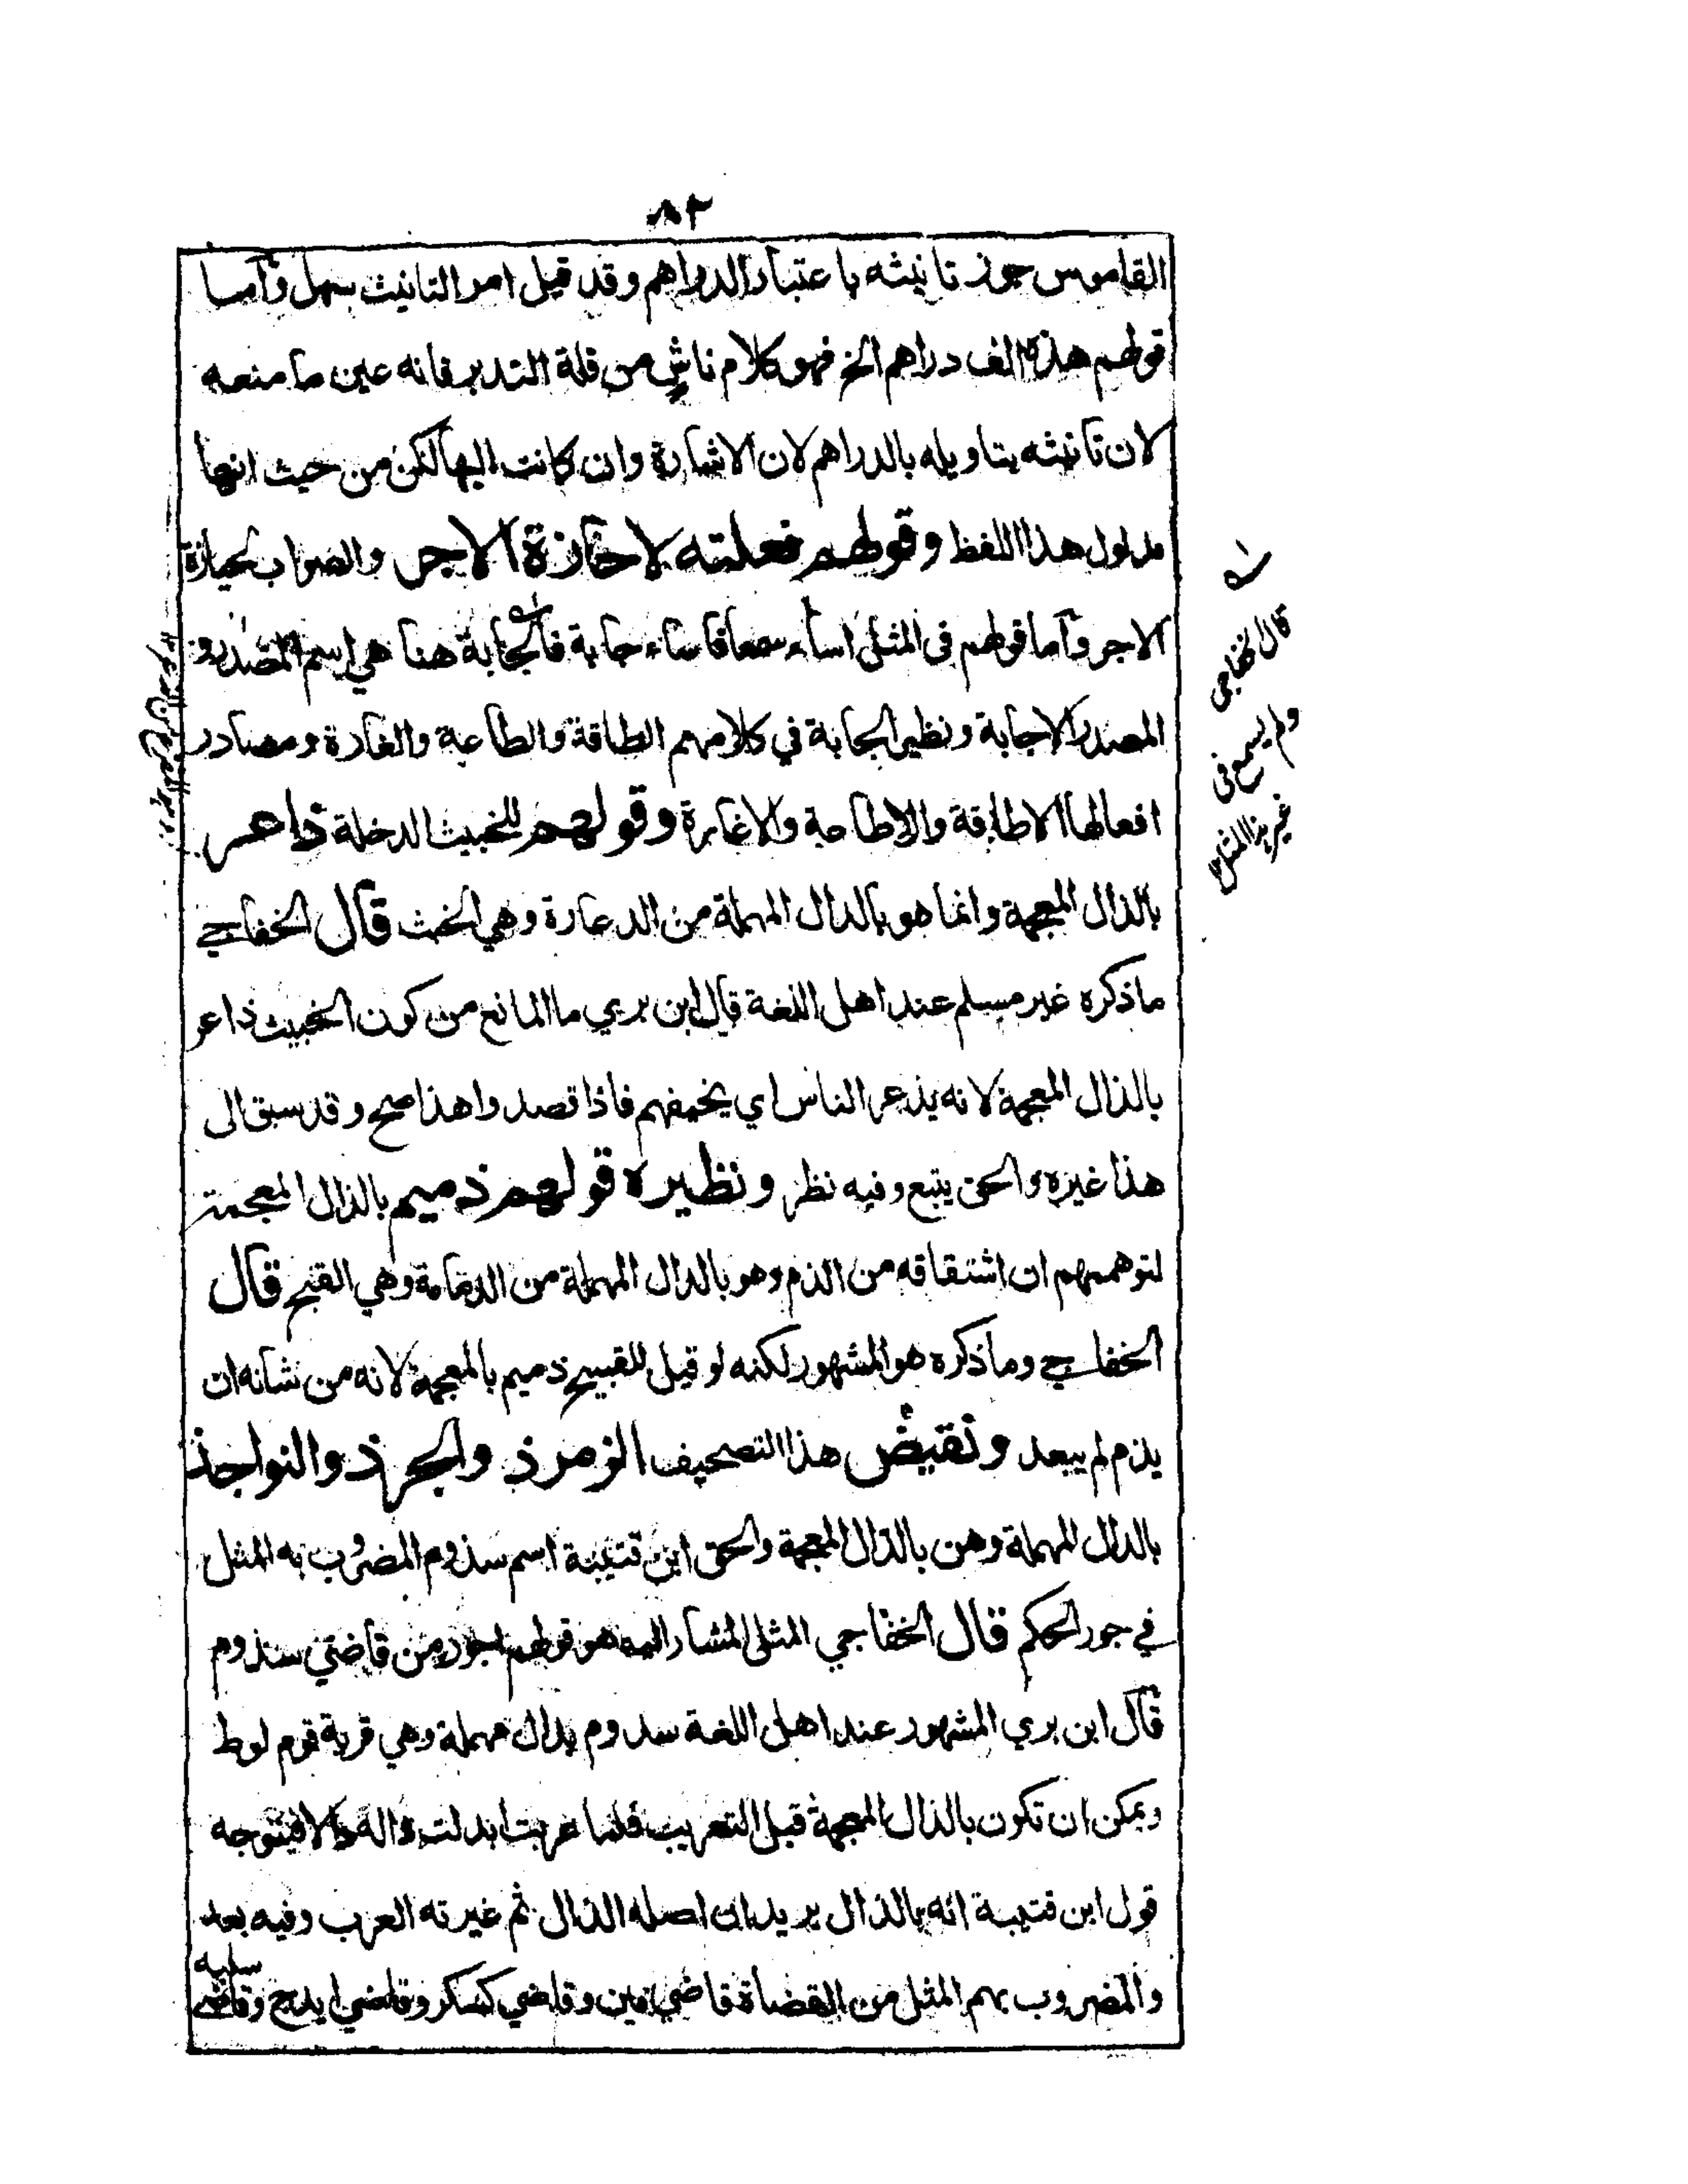 ٨٣
القاموس جوز تانيثه باعتبار الدراهم وقد قيل امر التانيث سهل وآما
قولهم هذه الف دراهم الخ فهو كلام ناشٍ من قلة التدبر فانه عين ما منعه
لان تانيثه بتاويله بالدراهم لان الاشارة وان كانت اليها لكن من حيث انها
مدلول هذا اللفظ وقولهم فعلته لاحازة الاجر والصواب لحيازة
الاجر وآما قولهم فى المثل اساء سمعا فاساء جابة فالجابة هنا هي اسم المصدر و
المصدر الاجابة ونظير الجابة في كلامهم الطاقة والطاعة والغارة ومصادر
افعالها الاطاقة والاطاعة والاغارة وقولهم للخبيث الدخلة ذاعر
بالذال المعجمة وانما هو بالدال المهملة من الدعارة وهي الخبث قال الخفاجي
ما ذكره غير مسلم عند اهل اللغة قال ابن بري ما المانع من كون الخبيث ذاعر
بالذال المعجمة لانه يذعر الناس اي يخيفهم فاذا قصدوا هذا صح وقد سبق الى
هذا غيره والحق يتبع وفيه نظر ونظيره قولهم ذميم بالذال المعجمة
لتوهمهم ان اشتقاقه من الذم وهو بالدال المهملة من الدمامة وهي القبح قال
الخفاجي وما ذكره هو المشهور لكنه لو قيل للقبيح ذميم بالمعجمة لانه من شانه ان
يذم لم يبعد ونقيض هذا التصحيف الزمرذ والجرذ والنواجذ
بالدال المهملة وهن بالذال المعجمة والحق ابن قتيبة اسم سذوم المضروب به المثل
في جور الحكم قال الخفاجي المثل المشار اليه هو قولهم اجور من قاضي سذوم
قال ابن بري المشهور عند اهل اللغة سدوم بدال مهملة وهي قرية قوم لوط
ويمكن ان تكون بالذال المعجمة قبل التعريب فلما عربت ابدلت ذاله دالا فيتوجه
قول ابن قتيبة انه بالذال يريد ان اصله الذال ثم غيرته العرب وفيه بعد
والمضروب بهم المثل من القضاة قاضي منى وقاضي كسكر وقاضي ايذج وقاضي
قال الخفاجى
ولم يسمع فى
غير هذا المثل